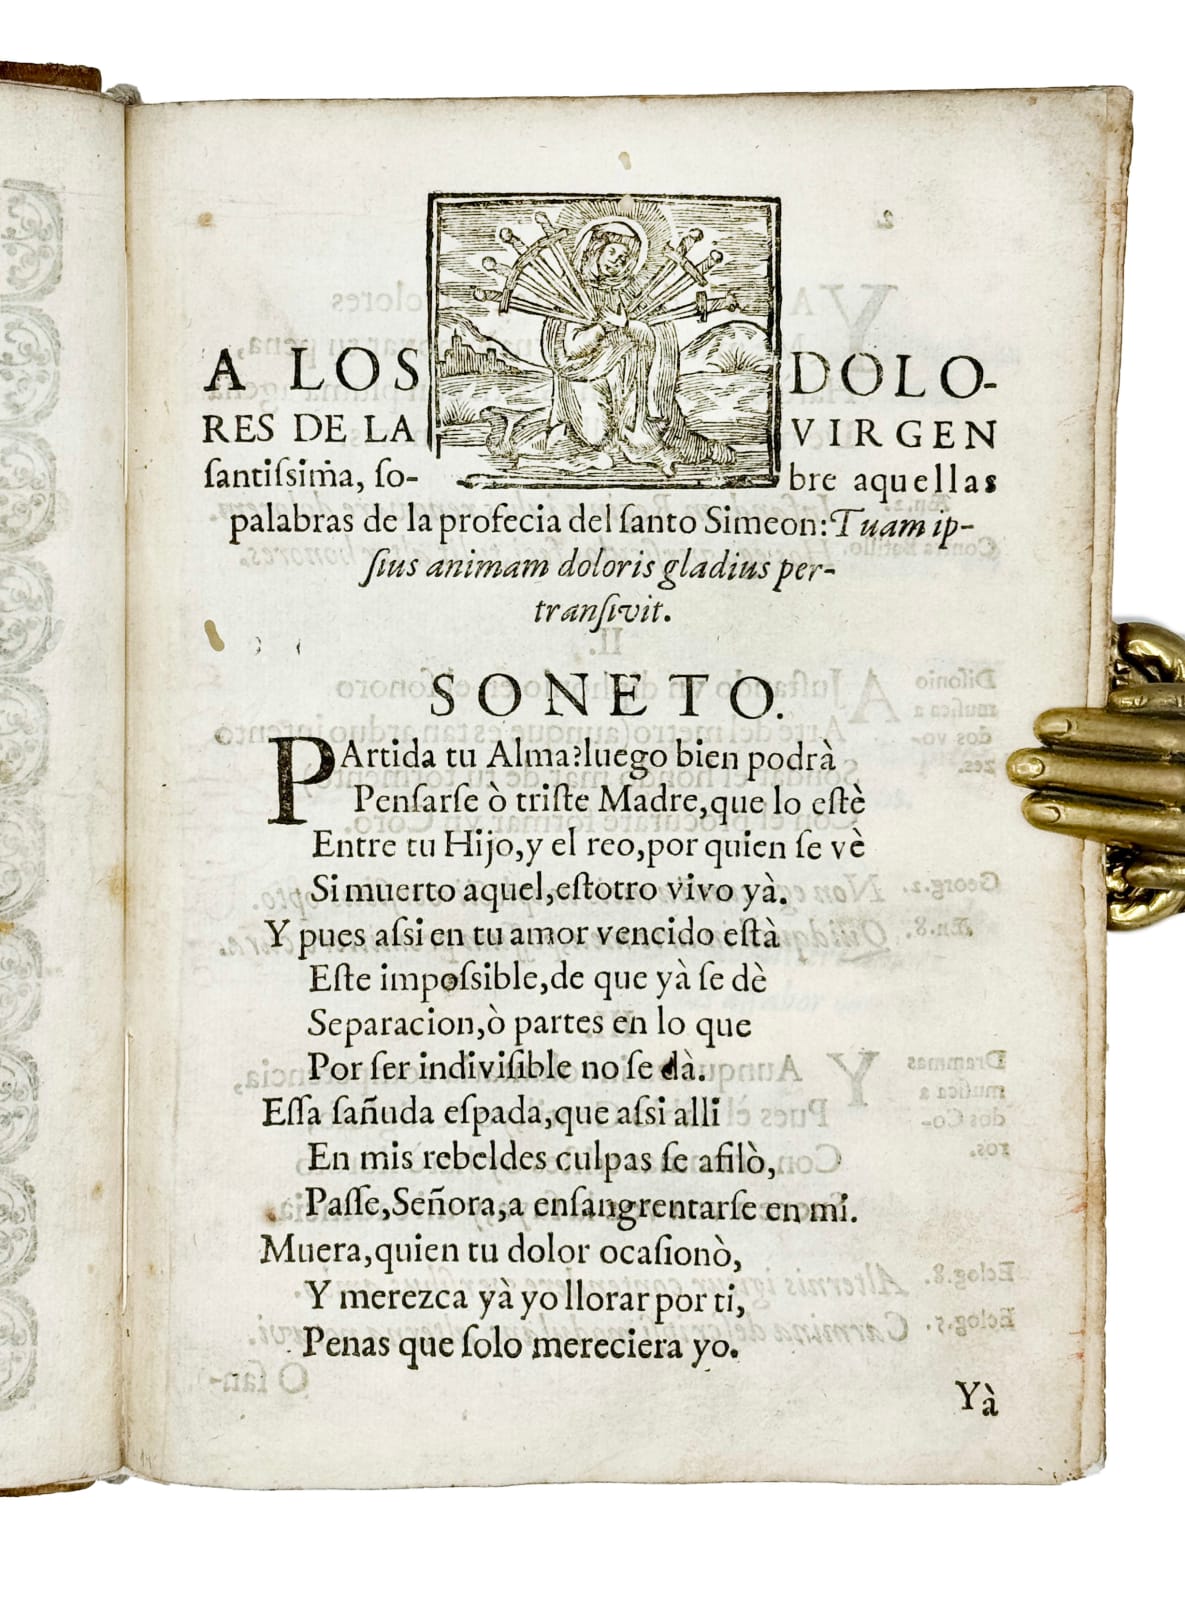 A LOS DOLO-
RES DE LA VIRGEN
ſantiſsima, ſo- bre aquellas
palabras de la profecia del ſanto Simeon: Tuam ip-
ſius animam doloris gladius per-
tranſivit.
SONETO.
PArtida tu Alma? luego bien podrà
Penſarſe ò triſte Madre, que lo eſtè
Entre tu Hijo, y el reo, por quien ſe vè
Si muerto aquel, eſtotro vivo yà.
Y pues aſsi en tu amor vencido eſtà
Eſte impoſsible, de que yà ſe dè
Separacion, ò partes en lo que
Por ſer indiviſible no ſe dà.
Eſſa ſañuda eſpada, que aſsi alli
En mis rebeldes culpas ſe afilò,
Paſſe, Señora, a enſangrentarſe en mi.
Muera, quien tu dolor ocaſionò,
Y merezca yà yo llorar por ti,
Penas que ſolo mereciera yo.
Yà